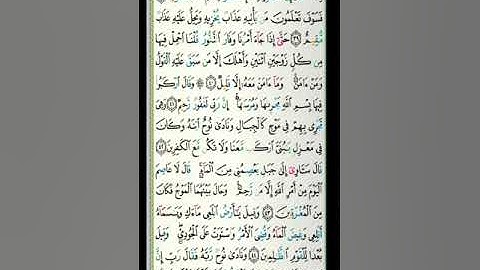 فَسَوْفَ تَعْلَمُونَ مَن يَأْتِيهِ عَذَابٌ يُخْزِيهِ وَيَحِلُّ عَلَيْهِ عَذَابٌ
مُّقِيمٌ ٣٩ حَتَّىٰٓ إِذَا جَآءَ أَمْرُنَا وَفَارَ ٱلتَّنُّورُ قُلْنَا ٱحْمِلْ فِيهَا
مِن كُلٍّ زَوْجَيْنِ ٱثْنَيْنِ وَأَهْلَكَ إِلَّا مَن سَبَقَ عَلَيْهِ ٱلْقَوْلُ
وَمَنْ ءَامَنَ ۚ وَمَآ ءَامَنَ مَعَهُۥٓ إِلَّا قَلِيلٌ ٤٠ وَقَالَ ٱرْكَبُوا۟
فِيهَا بِسْمِ ٱللَّهِ مَجْر۪ىٰهَا وَمُرْسَىٰهَآ ۚ إِنَّ رَبِّى لَغَفُورٌ رَّحِيمٌ ٤١ وَهِىَ
تَجْرِى بِهِمْ فِى مَوْجٍ كَٱلْجِبَالِ وَنَادَىٰ نُوحٌ ٱبْنَهُۥ وَكَانَ
فِى مَعْزِلٍ يَـٰبُنَىَّ ٱرْكَب مَّعَنَا وَلَا تَكُن مَّعَ ٱلْكَـٰفِرِينَ ٤٢
قَالَ سَـَٔاوِىٓ إِلَىٰ جَبَلٍ يَعْصِمُنِى مِنَ ٱلْمَآءِ ۚ قَالَ لَا عَاصِمَ
ٱلْيَوْمَ مِنْ أَمْرِ ٱللَّهِ إِلَّا مَن رَّحِمَ ۚ وَحَالَ بَيْنَهُمَا ٱلْمَوْجُ فَكَانَ
مِنَ ٱلْمُغْرَقِينَ ٤٣ وَقِيلَ يَـٰٓأَرْضُ ٱبْلَعِى مَآءَكِ وَيَـٰسَمَآءُ
أَقْلِعِى وَغِيضَ ٱلْمَآءُ وَقُضِىَ ٱلْأَمْرُ وَٱسْتَوَتْ عَلَى ٱلْجُودِىِّ ۖ وَقِيلَ
بُعْدًا لِّلْقَوْمِ ٱلظَّـٰلِمِينَ ٤٤ وَنَادَىٰ نُوحٌ رَّبَّهُۥ فَقَالَ رَبِّ إِنَّ